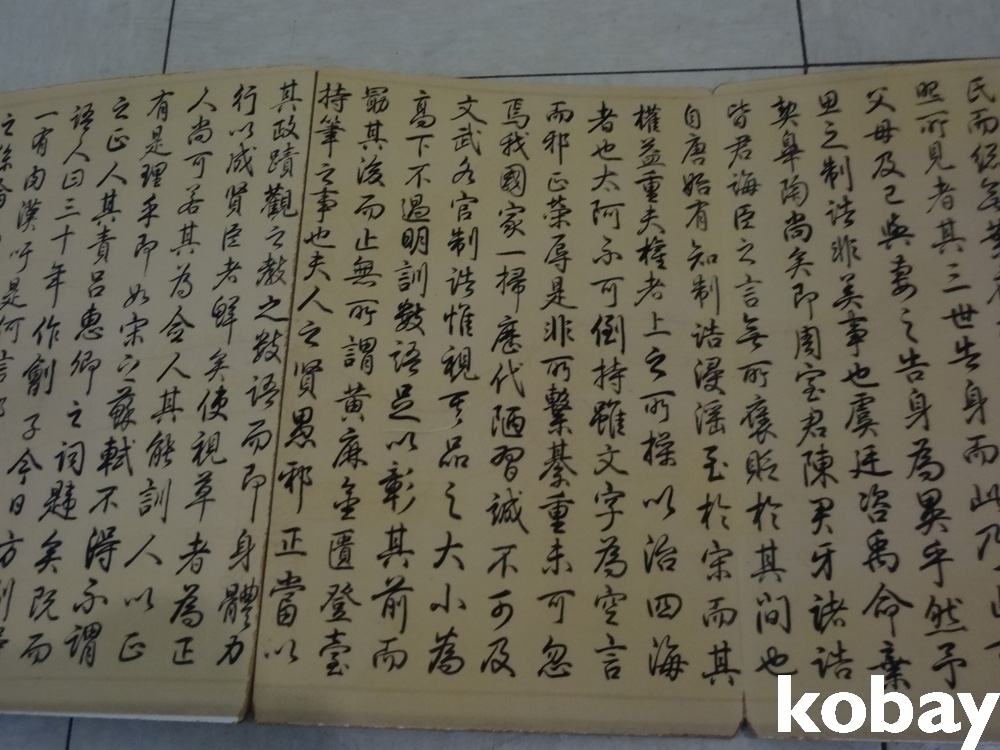 照所見者其三世告身而
父母及己與妻之告身為異乎然予
思之制誥非美事也虞廷咨禹命棄
契皋陶尚矣即周室君陳君牙諸誥
皆君誨臣之言無所褒貶於其間也
自唐始有知制誥浸淫至於宋而其
權益重夫權者上之所操以治四海
者也太阿不可倒持雖文字為空言
而邪正榮辱是非所繫綦重未可忽
焉我國家一掃歷代陋習誠不可及
文武各官制誥惟視其品之大小為
高下不過明訓數語足以彰其前而
勗其後而止無所謂黃麻金匱登臺
持筆之事也夫人之賢愚邪正當以
其政蹟觀之教之數語而即身體力
行以成賢臣者鮮矣使視草者為正
人尚可若其為僉人其能訓人以正
有是理乎即如宋之蘇軾不得不謂
之正人其責呂惠卿之詞韙矣既而
語人曰三十年作劊子今日方剮
一有肉漢吁是何言
kobay